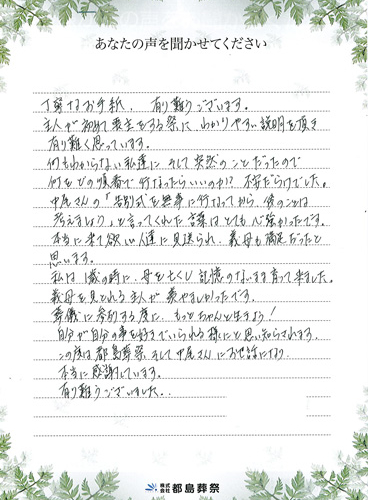 あなたの声を聞かせてください
丁寧なお手紙、有り難うございます。
主人が初めて喪主をする際に、わかりやすい説明を頂き
有り難く思っています。
何もわからない私達に、そして突然のことだったので
何をどの順番で行なったらいいのか!? 不安だらけでした。
中尾さんの「告別式を無事に行なってから、後のことは
考えましょう」と言ってくれた言葉はとても心強かったです。
本当に来て欲しい人達に見送られ、義母も満足だったと
思います。
私は1歳の時に、母を亡くし記憶のないまま育って来ました。
義母を見とれる主人が羨やましかったです。
葬儀に参列する度に、もっとちゃんと生きよう!
自分が自分の事を好きでいられる様にと思い知らされます。
この度は都島葬祭、そして中尾さんにお世話になり
本当に感謝しています。
有り難うございました。
株式会社 都島葬祭